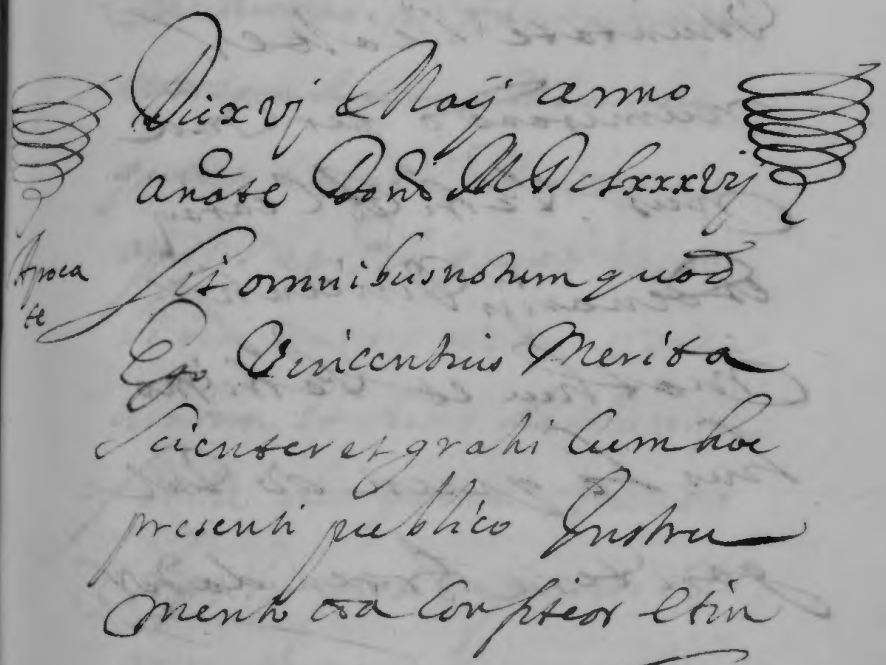 Die xvj Maij anno
anōte Domī MDclxxxvij
Apoca
Sit omnibus notum quod
te
Ego Vincentius Merita
Scienter et grahi Cum hoc
presenti publico Instru
mento Confiteor et in